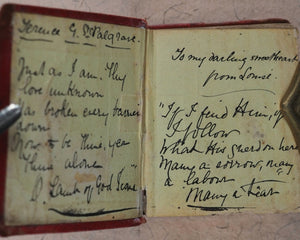 Terence G. Palgrave.
Just as I am. Thy
love unknown
Has broken every barrier
down
Now to be thine, yea
thine alone
O Lamb of God I come"
To my darling sweetheart
from Louise.
"If I find Him, if
I follow
What His guerdon here
Many a sorrow, many
a labour
Many a tear